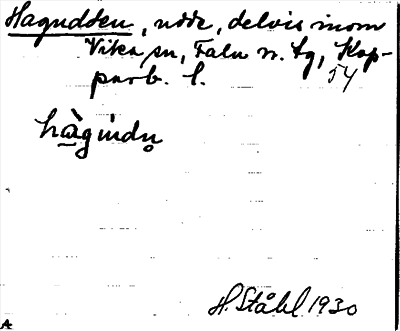 Hagudden, udde, delvis inom
Vika sn, Falu n. tg, Kop-
parb. l.
54
hàgúdn
H. Ståhl 1930